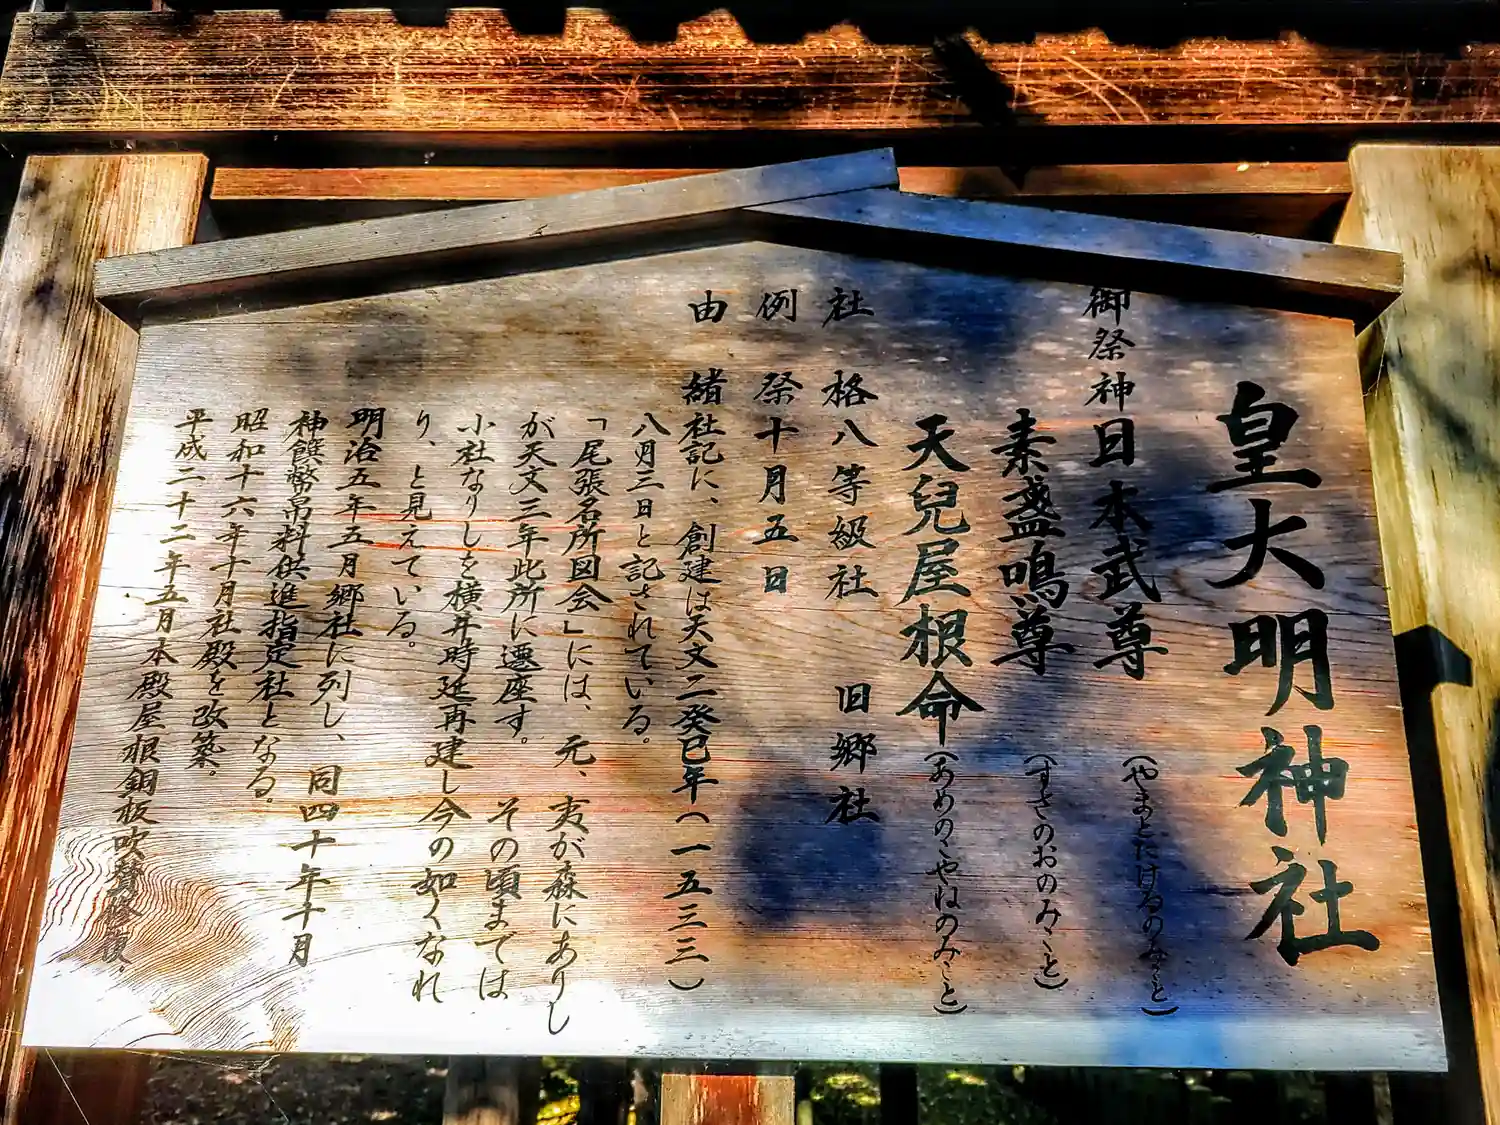 皇大明神社
御祭神日本武尊(やまとたけるのみこと)
素盞鳴尊(すさのおのみこと)
天兒屋根命(あめのこやねのみこと)
社格八等級社 旧郷社
例祭十月五日
由緒社記に、創建は天文二癸巳年(一五三三)
八月三日と記されている。
「尾張名所図会」には、元、夷が森にありし
が天文三年此所に遷座す。その頃までは
小社なりしを横井時延再建し今の如くなれ
り、と見えている。
明治五年五月郷社に列し、同四十年十月
神饌幣帛料供進指定社となる。
昭和十六年十月社殿を改築。
平成二十二年五月本殿屋根銅板吹替修復.